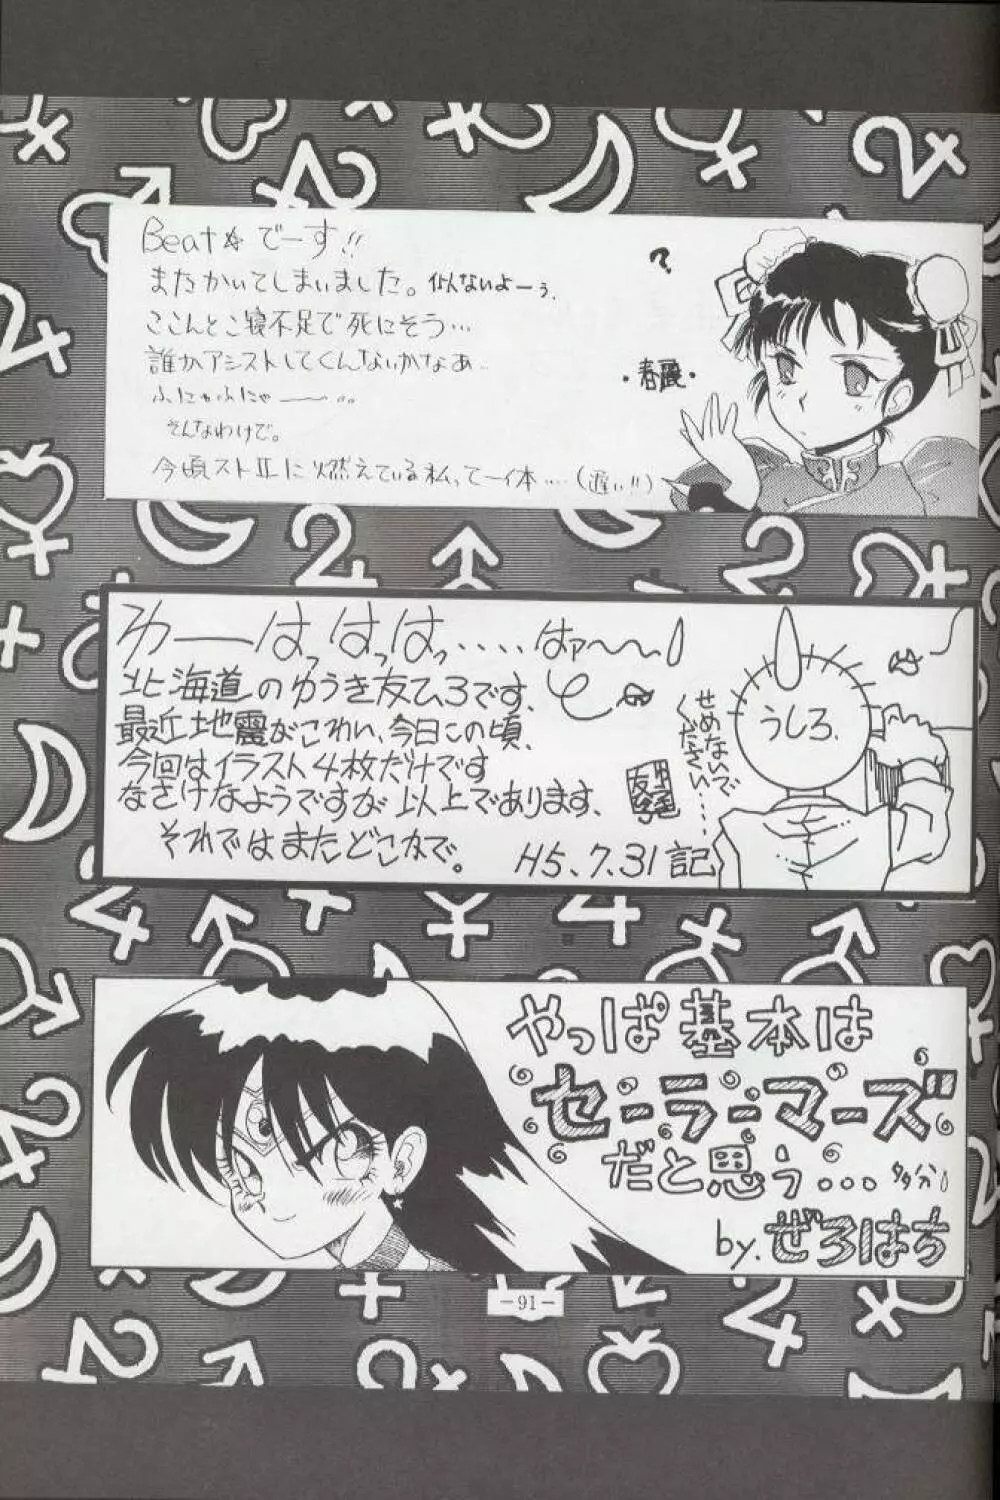 Beat☆でーす!!
またかいてしまいました。似んないよーぅ.
ここんとこ寝不足で死にそう…
誰かアシストしてくんないかなあ..
ふにゃふにゃ——...
そんなわけで。
今頃ストⅡに燃えている私って一体…(遅い!!)
?
・春麗・
わーはっはっはっ....はァ〜〜
北海道のゆうき友ひろです、
最近地震がこわい、今日この頃、
今回はイラスト4枚だけです
なさけなようですが以上であります、
それではまたどこかで。
H5.7.31記
せめないで
ください…
うしろ.
やっぱ基本は
セーラーマーズ
だと思う... 多分
by.ぜろはち
-91-